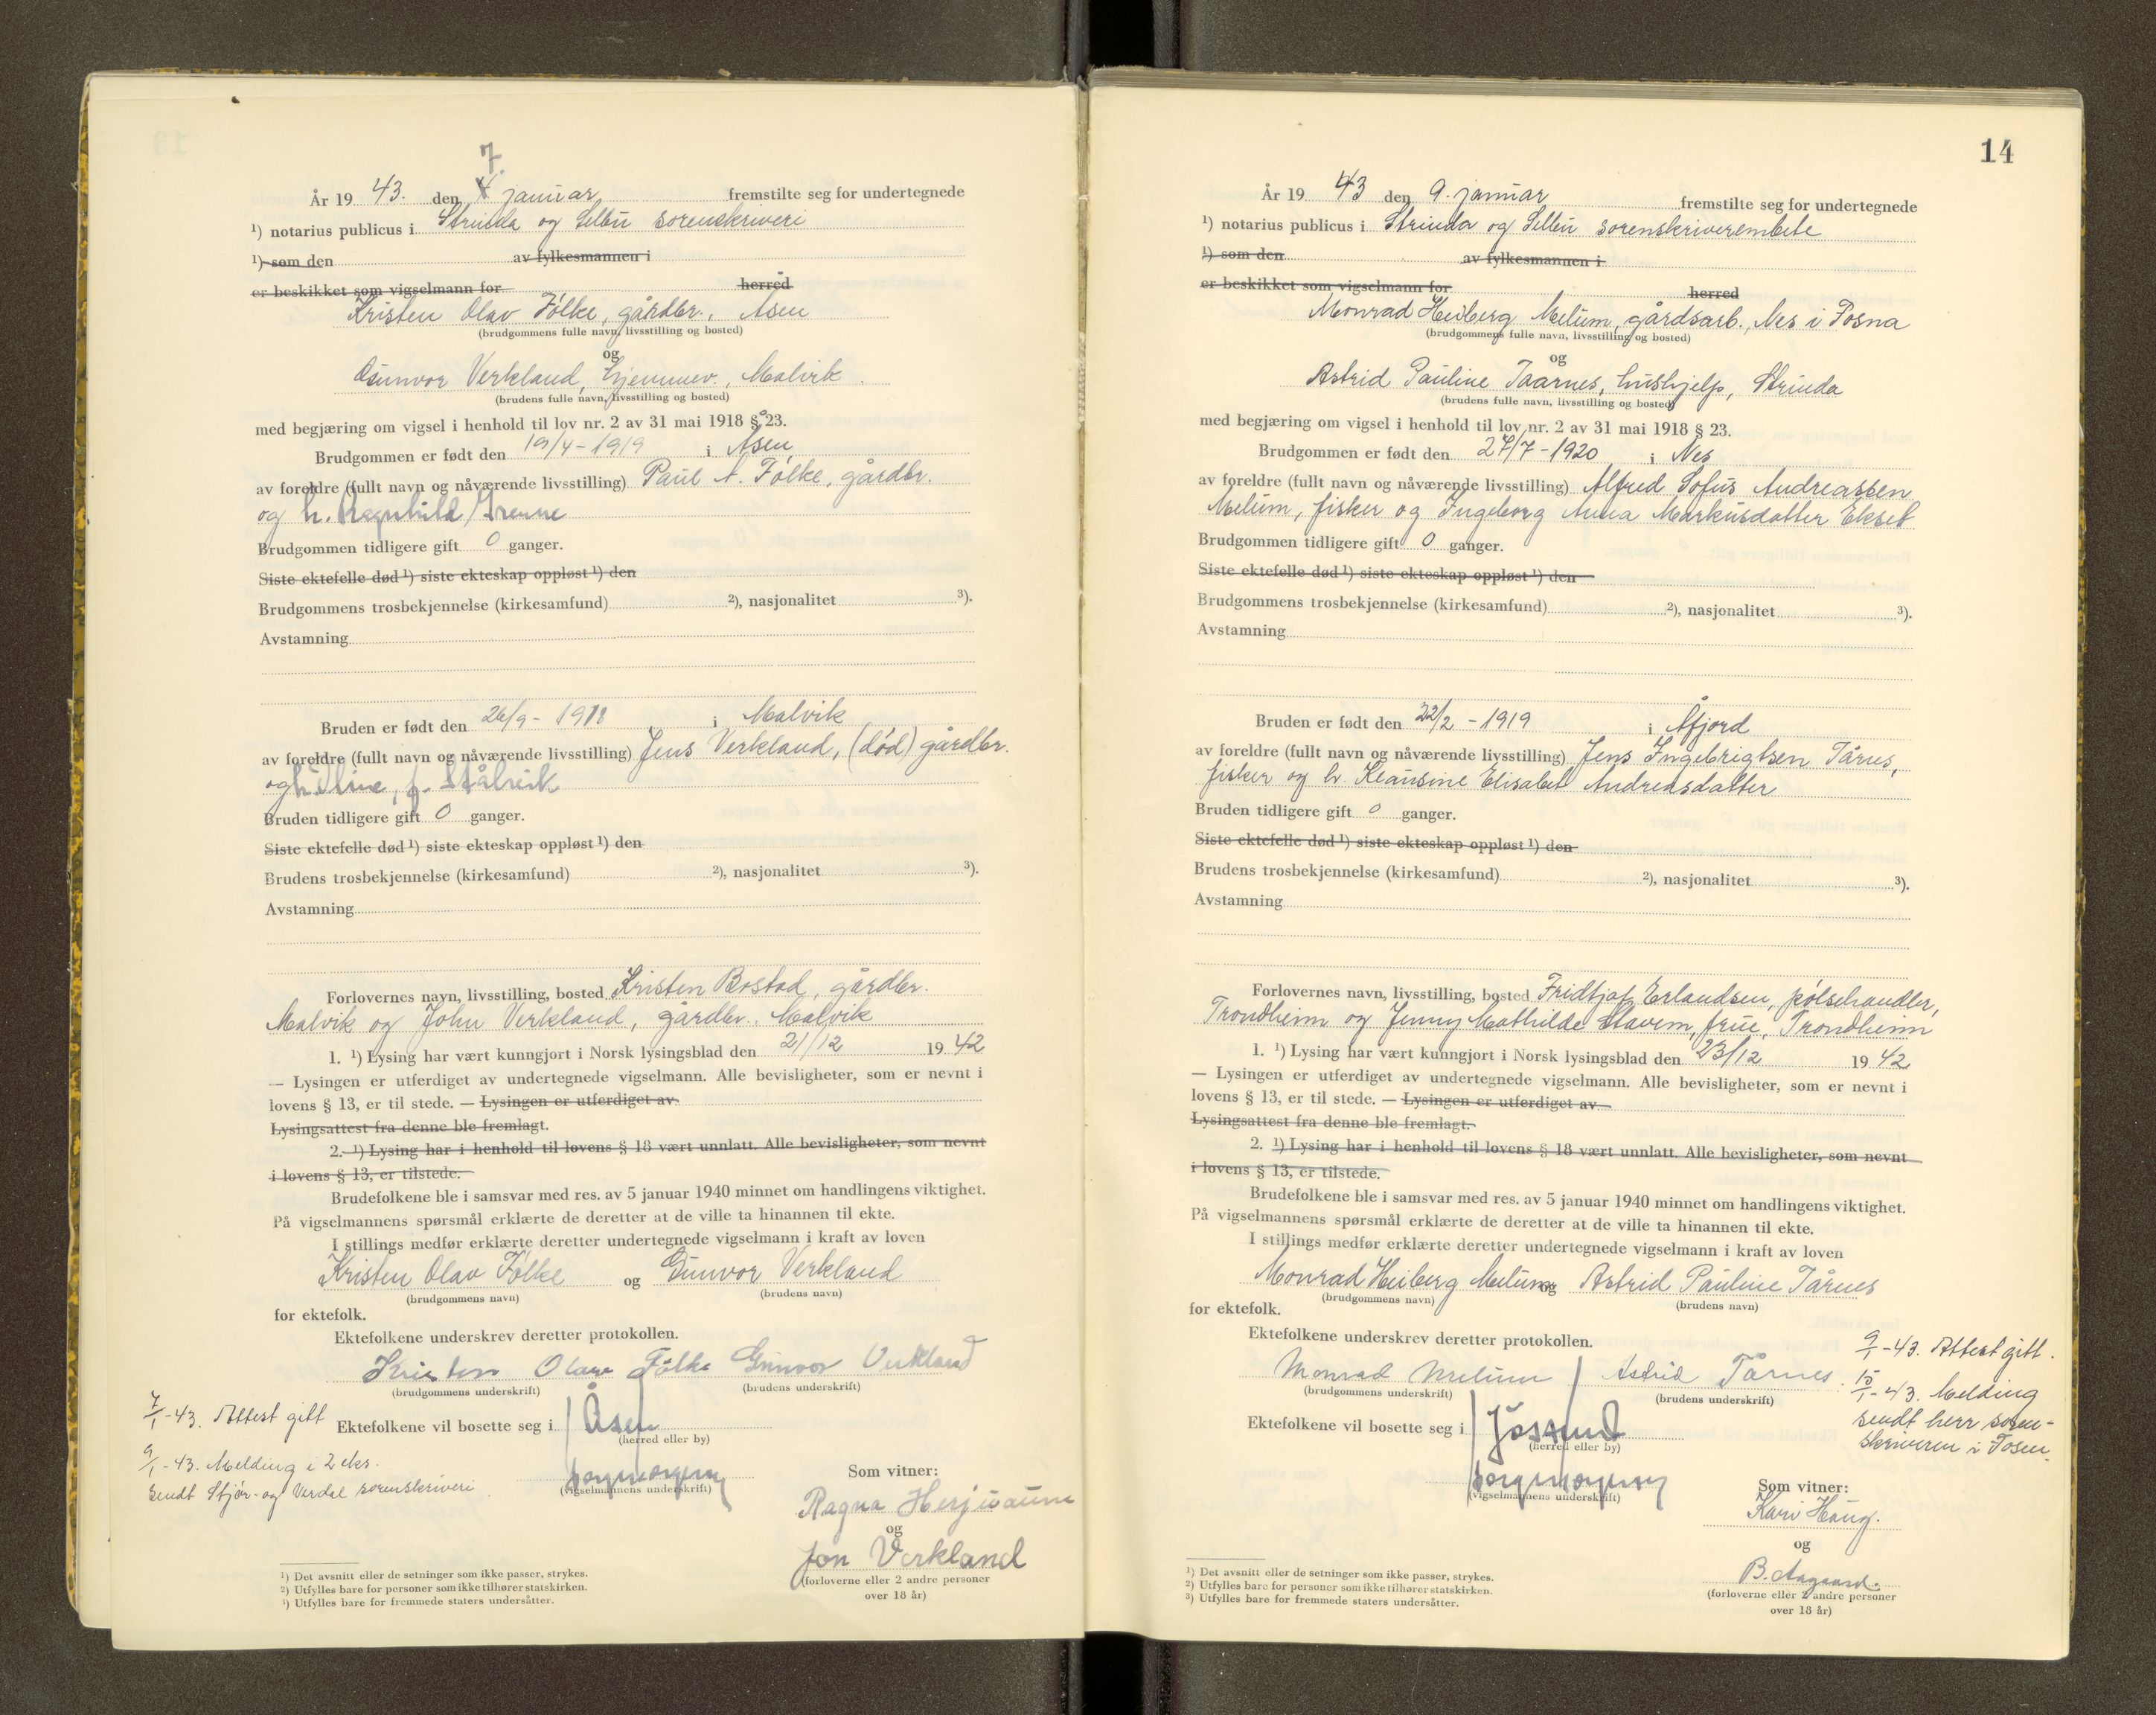 7.
År 19 43. den 4 januar fremstilte seg for undertegnede
¹) notarius publicus i Strinda og Selbu sorenskriveri
¹) som den av fylkesmannen i
er beskikket som vigselmann for herred
Kristen Olav Følke, gårdbr., Åsen
(brudgommens fulle navn, livsstilling og bosted)
og
Gunvor Verkland, hjemmev., Malvik.
(brudens fulle navn, livsstilling og bosted)
med begjæring om vigsel i henhold til lov nr. 2 av 31 mai 1918 § 23.
Brudgommen er født den 19/4-1919 i Åsen
av foreldre (fullt navn og nåværende livsstilling) Paul A. Følke, gårdbr.
og h. Ragnhild Grenne
Brudgommen tidligere gift 0 ganger.
Siste ektefelle død ¹) siste ekteskap oppløst ¹) den
Brudgommens trosbekjennelse (kirkesamfund) ²), nasjonalitet ³).
Avstamning
Bruden er født den 26/9-1918 i Malvik
av foreldre (fullt navn og nåværende livsstilling) Jens Verkland, (død) gårdbr.
og h. Stålvik
Bruden tidligere gift 0 ganger.
Siste ektefelle død ¹) siste ekteskap oppløst ¹) den
Brudens trosbekjennelse (kirkesamfund) ²), nasjonalitet ³).
Avstamning
Forlovernes navn, livsstilling, bosted Kristen Bostad, gårdbr.
Malvik og John Verkland, gårdbr., Malvik
1. ¹) Lysing har vært kunngjort i Norsk lysingsblad den 21/12 19 42
— Lysingen er utferdiget av undertegnede vigselmann. Alle bevisligheter, som er nevnt i
lovens § 13, er til stede. — Lysingen er utferdiget av
Lysingsattest fra denne ble fremlagt.
2. ¹) Lysing har i henhold til lovens § 18 vært unnlatt. Alle bevisligheter, som nevnt
i lovens § 13, er tilstede.
Brudefolkene ble i samsvar med res. av 5 januar 1940 minnet om handlingens viktighet.
På vigselmannens spørsmål erklærte de deretter at de ville ta hinannen til ekte.
I stillings medfør erklærte deretter undertegnede vigselmann i kraft av loven
Kristen Olav Følke og Gunvor Verkland
(brudgommens navn) (brudens navn)
for ektefolk.
Ektefolkene underskrev deretter protokollen.
Kristen Olav Følke Gunvor Verkland
(brudgommens underskrift) (brudens underskrift)
7/1-43. Attest gitt
Ektefolkene vil bosette seg i Åsen
(herred eller by)
9/1-43. Melding i 2 eks.
sendt Stjør- og Verdal sorenskriveri.
(vigselmannens underskrift)
Som vitner:
Ragna
og
Jon Verkland
(forloverne eller 2 andre personer
over 18 år)
¹) Det avsnitt eller de setninger som ikke passer, strykes.
²) Utfylles bare for personer som ikke tilhører statskirken.
³) Utfylles bare for fremmede staters undersåtter.
14
År 19 43 den 9. januar fremstilte seg for undertegnede
¹) notarius publicus i Strinda og Selbu sorenskriverembete
¹) som den av fylkesmannen i
er beskikket som vigselmann for herred
Monrad Heiberg Melum, gårdsarb., Nes i Fosna
(brudgommens fulle navn, livsstilling og bosted)
og
Astrid Pauline Taarnes, hushjelp, Strinda
(brudens fulle navn, livsstilling og bosted)
med begjæring om vigsel i henhold til lov nr. 2 av 31 mai 1918 § 23.
Brudgommen er født den 27/7-1920 i Nes
av foreldre (fullt navn og nåværende livsstilling) Alfred Sofus Andreassen
Melum, fisker og Ingeborg Anna Markusdatter Ekset
Brudgommen tidligere gift 0 ganger.
Siste ektefelle død ¹) siste ekteskap oppløst ¹) den
Brudgommens trosbekjennelse (kirkesamfund) ²), nasjonalitet ³).
Avstamning
Bruden er født den 22/2-1919 i Åfjord
av foreldre (fullt navn og nåværende livsstilling) Jens Ingebrigtsen Tårnes,
fisker og h. Klausine Elisabet Andreasdatter
Bruden tidligere gift 0 ganger.
Siste ektefelle død ¹) siste ekteskap oppløst ¹) den
Brudens trosbekjennelse (kirkesamfund) ²), nasjonalitet ³).
Avstamning
Forlovernes navn, livsstilling, bosted Fridtjof Erlandsen, pølsehandler,
Trondheim og Jenny Mathilde Stavem, frue, Trondheim
1. ¹) Lysing har vært kunngjort i Norsk lysingsblad den 23/12 19 42
— Lysingen er utferdiget av undertegnede vigselmann. Alle bevisligheter, som er nevnt i
lovens § 13, er til stede. — Lysingen er utferdiget av
Lysingsattest fra denne ble fremlagt.
2. ¹) Lysing har i henhold til lovens § 18 vært unnlatt. Alle bevisligheter, som nevnt
i lovens § 13, er tilstede.
Brudefolkene ble i samsvar med res. av 5 januar 1940 minnet om handlingens viktighet.
På vigselmannens spørsmål erklærte de deretter at de ville ta hinannen til ekte.
I stillings medfør erklærte deretter undertegnede vigselmann i kraft av loven
Monrad Heiberg Melum og Astrid Pauline Tårnes
(brudgommens navn) (brudens navn)
for ektefolk.
Ektefolkene underskrev deretter protokollen.
Monrad Melum Astrid Tårnes.
(brudgommens underskrift) (brudens underskrift)
9/1-43. Attest gitt.
15/1-43. Melding
sendt herr soren-
skriveren i Fosen.
Ektefolkene vil bosette seg i Jøssund
(herred eller by)
(vigselmannens underskrift)
Som vitner:
Kari Haug.
og
B. Aagaard.
(forloverne eller 2 andre personer
over 18 år)
¹) Det avsnitt eller de setninger som ikke passer, strykes.
²) Utfylles bare for personer som ikke tilhører statskirken.
³) Utfylles bare for fremmede staters undersåtter.